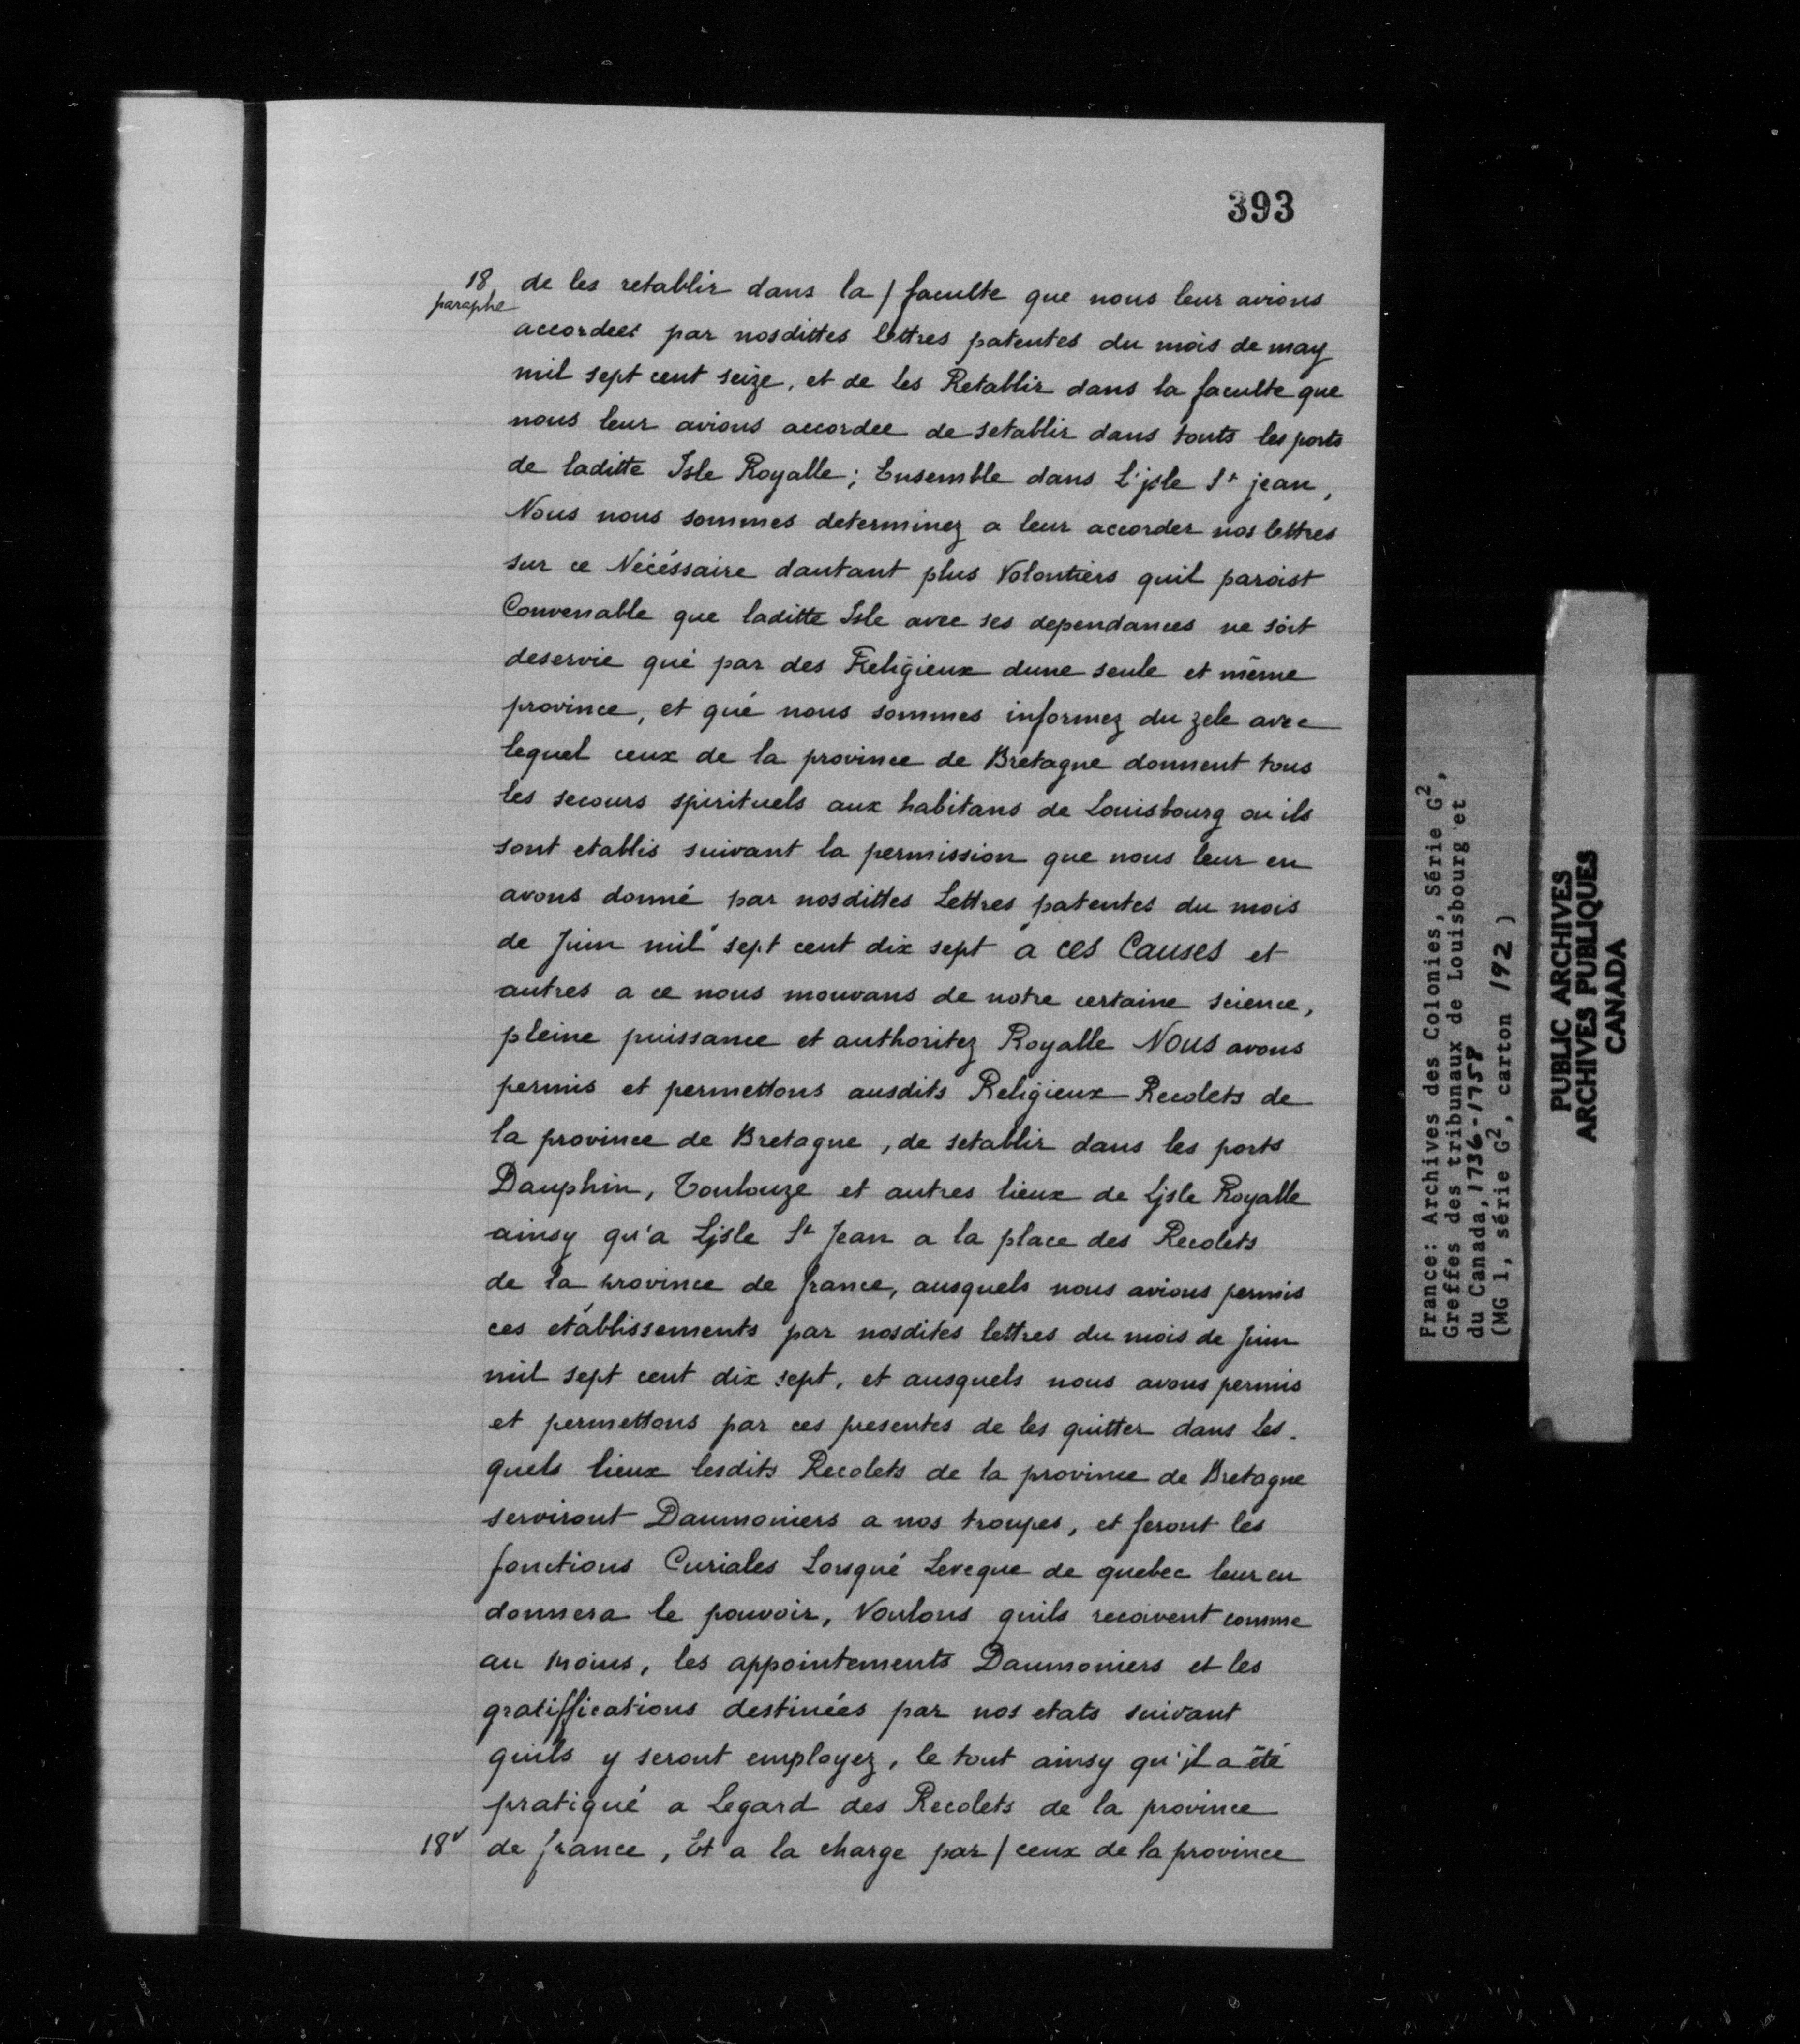 393
18 de les retablir dans la / faculte que nous leur avions
paraphe
accordees par nosdittes lettres patentes du mois de may
mil sept cent seize, et de les Retablir dans la faculte que
nous leur avions accordee de setablir dans touts les ports
de laditte Isle Royalle; Ensemble dans L'jsle St jean,
Nous nous sommes determinez a leur accorder nos lettres
sur ce Nécéssaire dautant plus Volontiers quil paroist
Convenable que laditte Isle avec ses dependances ne soit
deservie qué par des Religieux dune seule et même
province, et qué nous sommes informez du zele avec
lequel ceux de la province de Bretagne donnent tous
les secours spirituels aux habitans de Louisbourg ou ils
sont etablis suivant la permission que nous leur en
avons donné par nosdittes Lettres patentes du mois
de Juin mil sept cent dix sept a ces Causes et
autres a ce nous mouvans de notre certaine science,
pleine puissance et authoritez Royalle Nous avons
permis et permettons ausdits Religieux Recolets de
la province de Bretagne, de setablir dans les ports
Dauphin, Toulouze et autres lieux de Ljsle Royalle
ainsy qu'a Ljsle St Jean a la place des Recolets
de la province de france, ausquels nous avions permis
ces établissements par nosdites lettres du mois de Juin
mil sept cent dix sept, et ausquels nous avons permis
et permettons par ces presentes de les quitter dans les-
quels lieux lesdits Recolets de la province de Bretagne
serviront Daumoniers a nos troupes, et feront les
fonctions Curiales Lorsqué Leveque de quebec leur en
donnera le pouvoir, Voulons quils recoivent comme
au moins, les appointements Daumoniers et les
gratiffications destinées par nos etats suivant
quils y seront employez, le tout ainsy qu'jl a été
pratiqué a Legard des Recolets de la province
18v de france, Et a la charge par / ceux de la province
France: Archives des Colonies, Série G2,
Greffes des tribunaux de Louisbourg et
du Canada, 1736-1758
(MG 1, série G2, carton 192)
PUBLIC ARCHIVES
ARCHIVES PUBLIQUES
CANADA